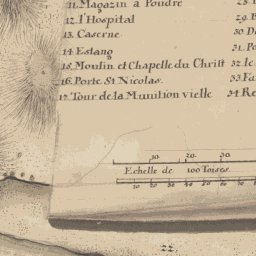 11. Magazin à Poudre
12. l'Hospital
13. Caserne
14. Estang
15. Moulin et Chapelle du Christ
16. Porte St Nicolas.
17. Tour de la Munition vielle
29.
30. D
31. P
32. le
33. Fa
34. Re
10 20 30
Echelle de 100 Toises.
10 20 30 40 50 60 70
22.